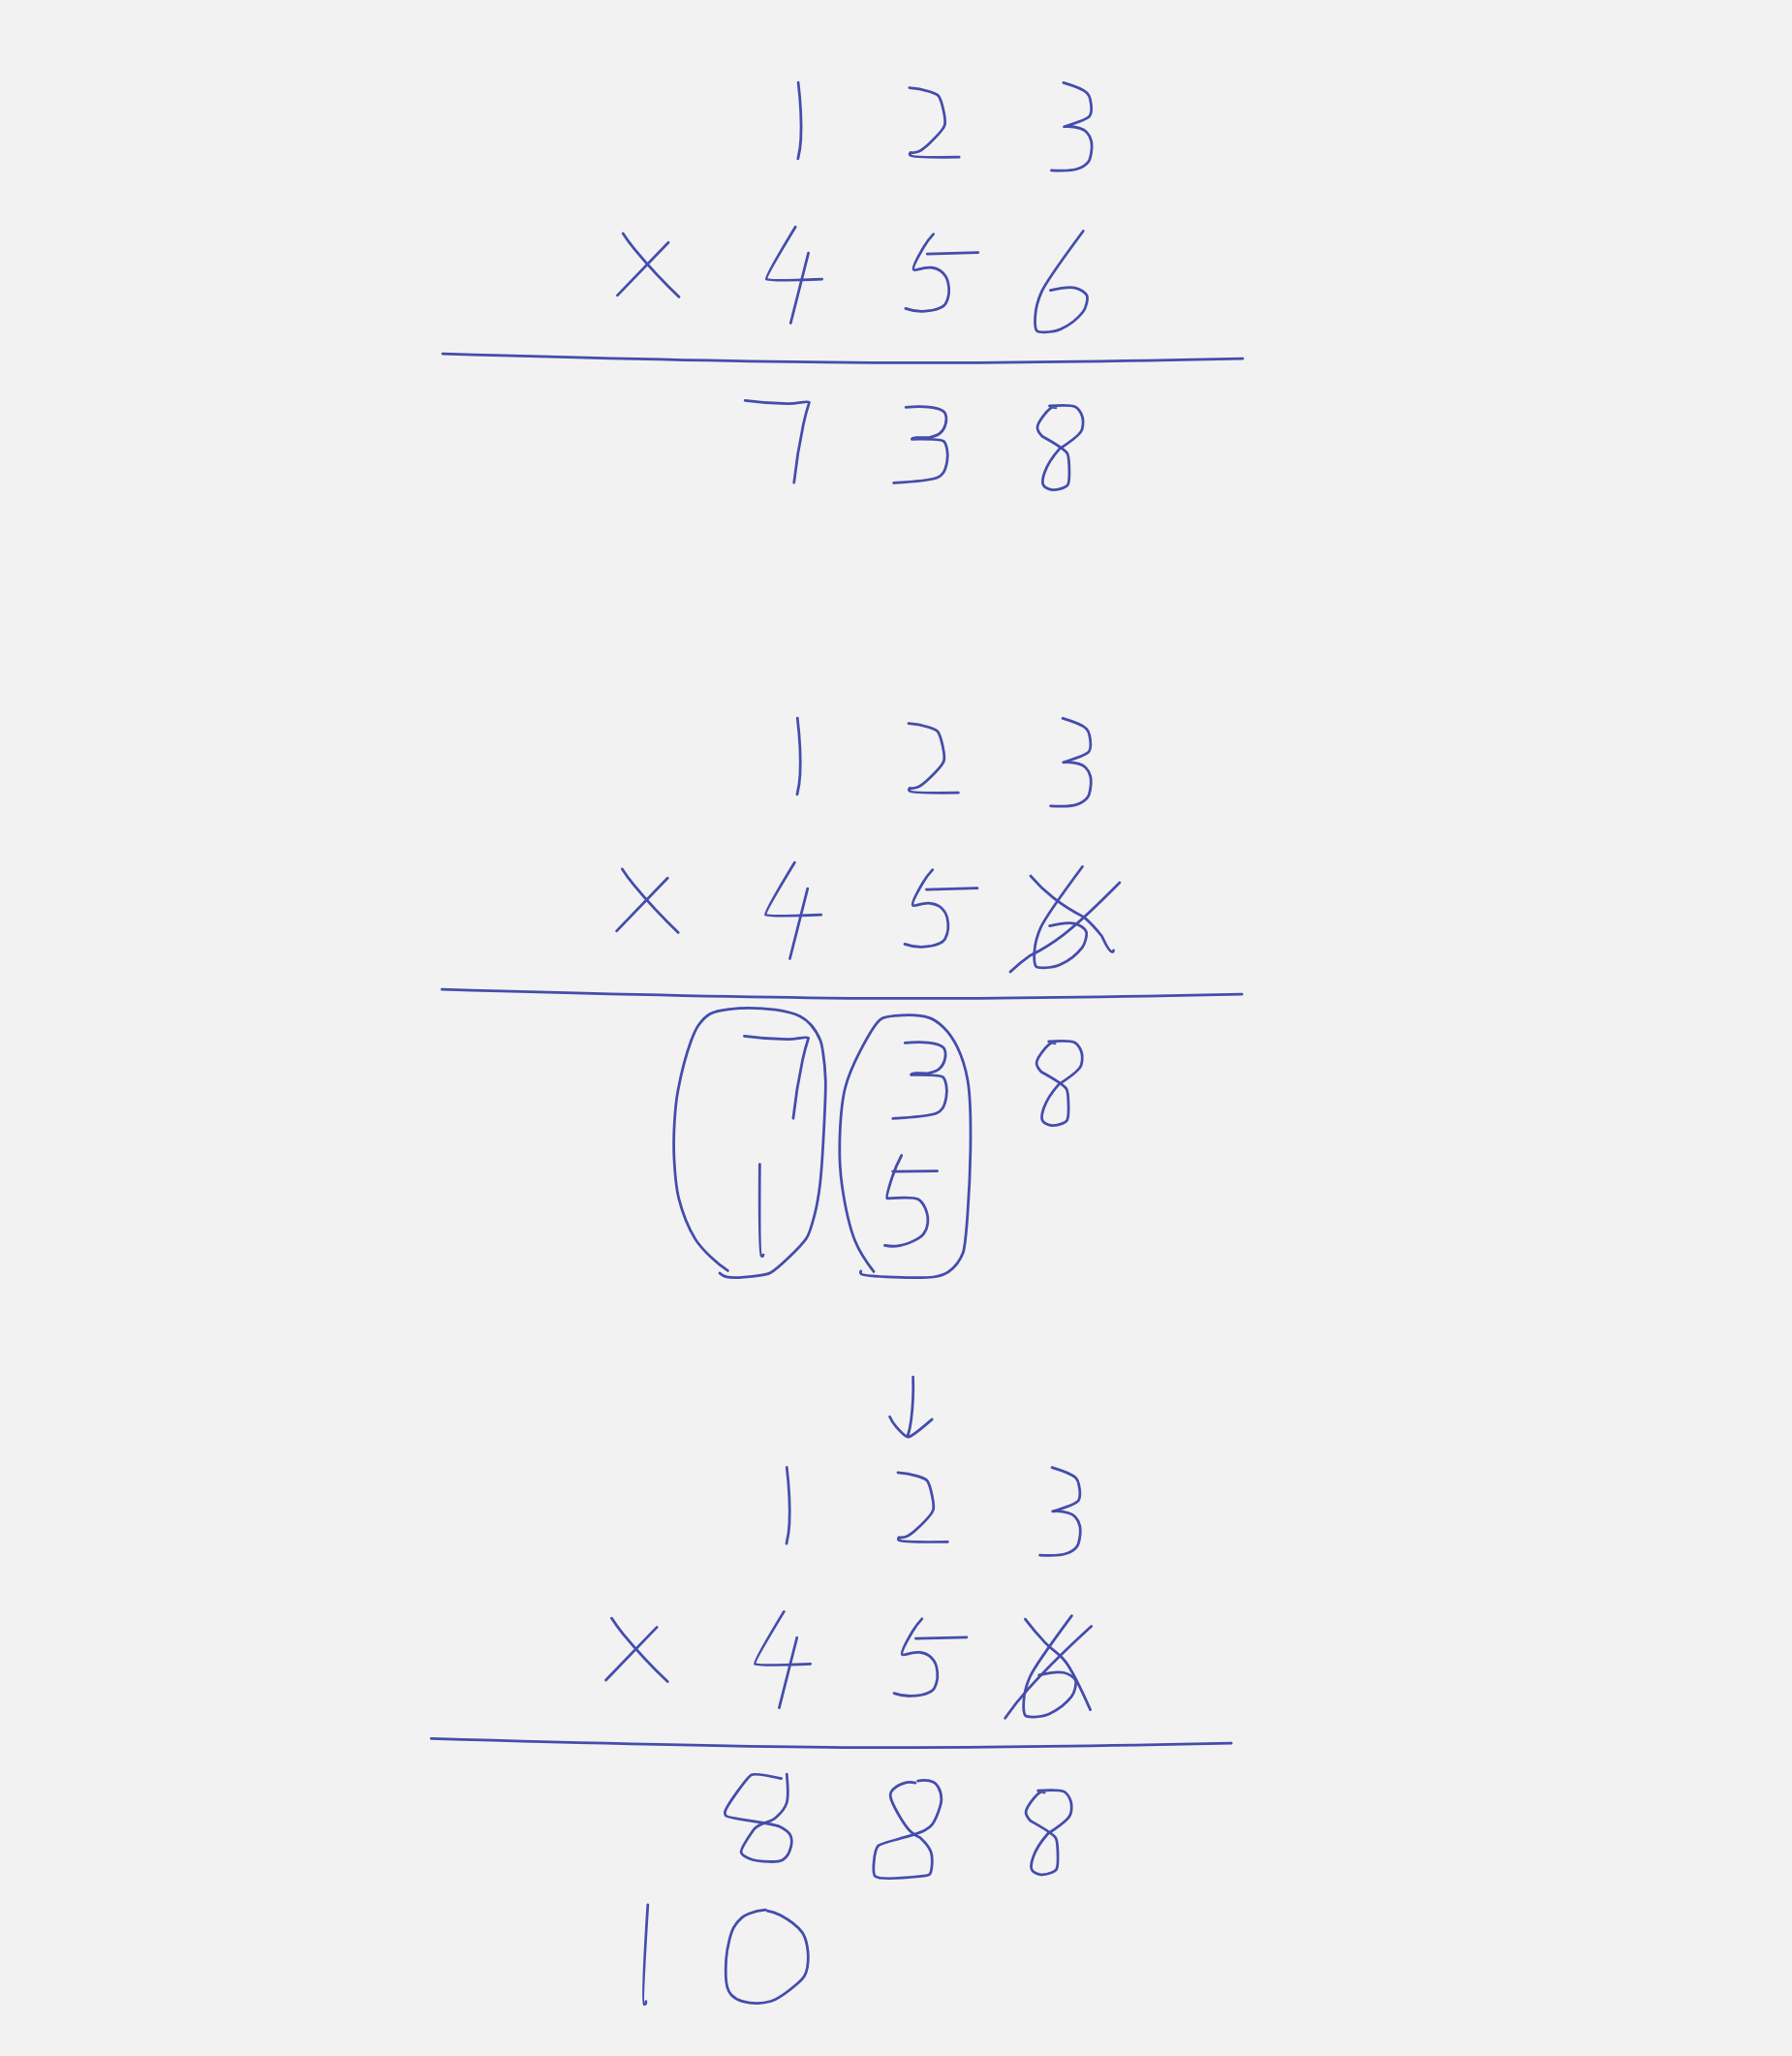 1 2 3
× 4 5 6
7 3 8
1 2 3
× 4 5 6
7 3 8
1 5
↓
1 2 3
× 4 5 6
8 8 8
1 0